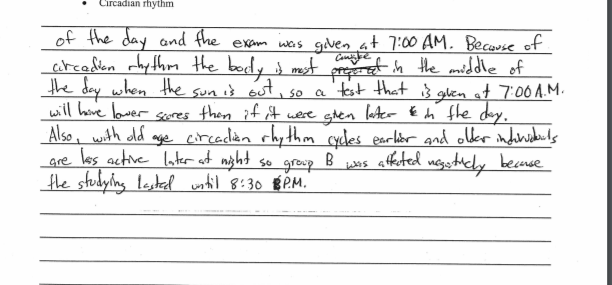 • Circadian rhythm
of the day and the exam was given at 7:00 AM. Because of
circadian rhythm the body is most awake in the middle of
the day when the sun is out, so a test that is given at 7:00 A.M.
will have lower scores than if it were given later in the day.
Also, with old age circadian rhythm cycles earlier and older individuals
are less active later at night so group B was affected negatively because
the studying lasted until 8:30 P.M.